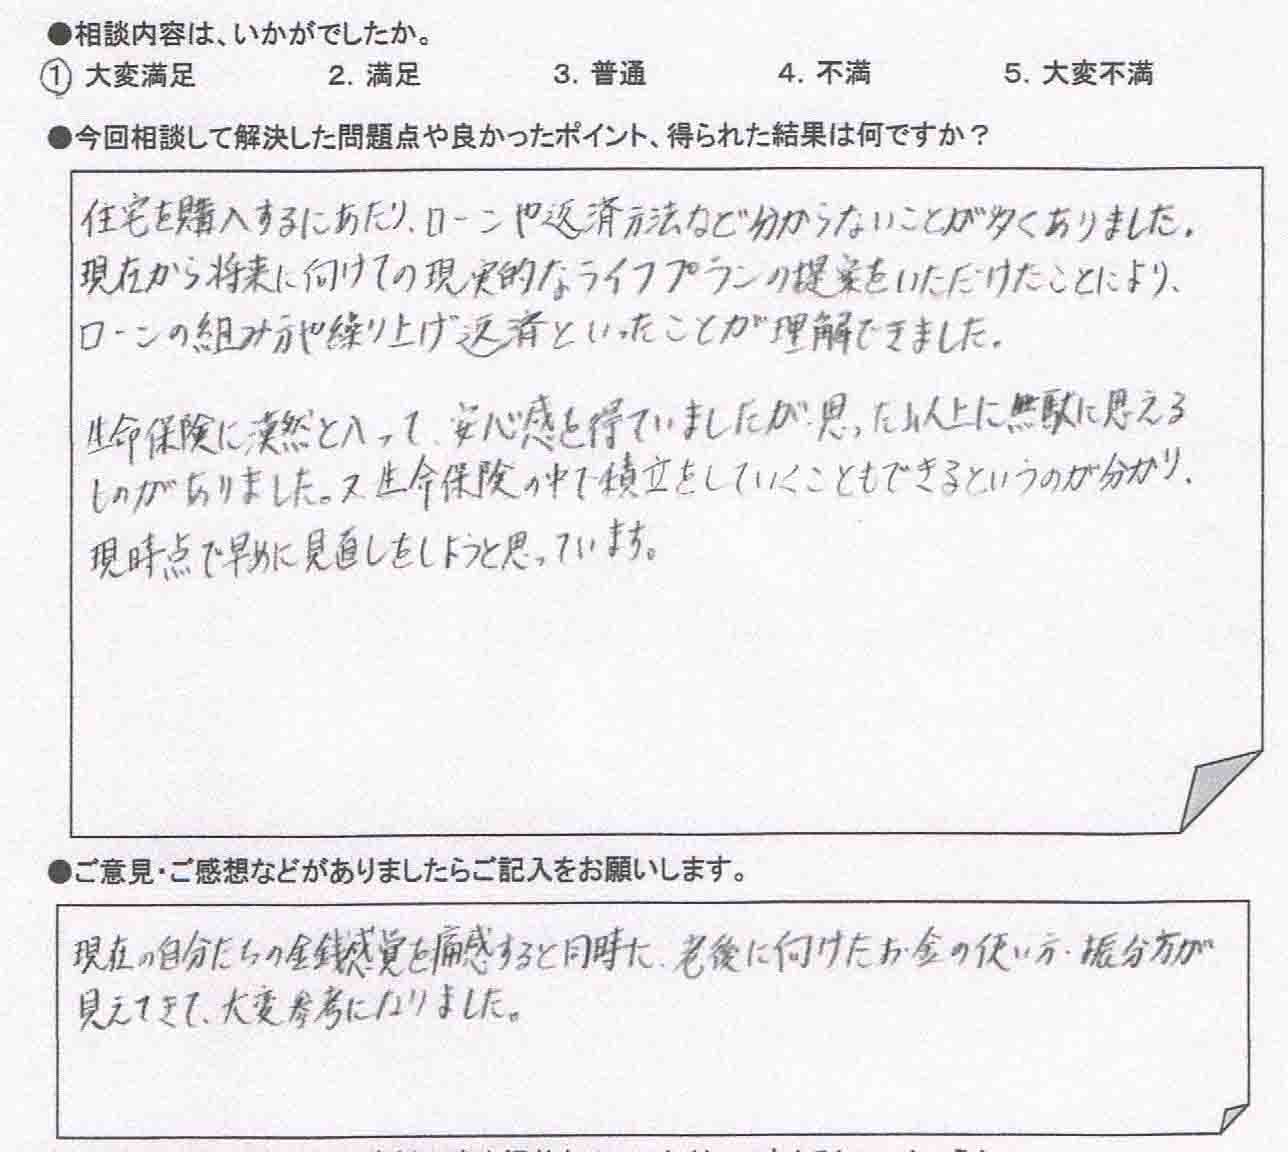 ●相談内容は、いかがでしたか。
① 大変満足 2. 満足 3. 普通 4. 不満 5. 大変不満
●今回相談して解決した問題点や良かったポイント、得られた結果は何ですか？
住宅を購入するにあたり、ローンや返済方法など分からないことが多くありました。
現在から将来に向けての現実的なライフプランの提案をいただけたことにより、
ローンの組み方や繰り上げ返済といったことが理解できました。
生命保険に漠然と入って、安心感を得ていましたが、思った以上に無駄に思える
ものがありました。又生命保険の中で積立をしていくこともできるというのが分かり、
現時点で早めに見直しをしようと思っています。
●ご意見・ご感想などがありましたらご記入をお願いします。
現在の自分たちの金銭感覚を痛感すると同時に、老後に向けたお金の使い方・振分方が
見えてきて、大変参考になりました。